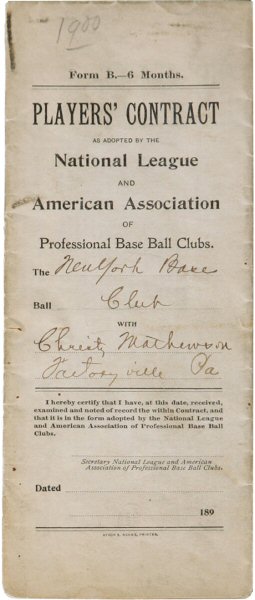 1900
Form B.—6 Months.
PLAYERS' CONTRACT
AS ADOPTED BY THE
National League
AND
American Association
OF
Professional Base Ball Clubs.
The New York Base
Ball Club
WITH
Christy Mathewson
Factoryville Pa
I hereby certify that I have, at this date, received,
examined and noted of record the within Contract, and
that it is in the form adopted by the National League
and American Association of Professional Base Ball
Clubs.
Secretary National League and American
Association of Professional Base Ball Clubs.
Dated
189
PRINTER.